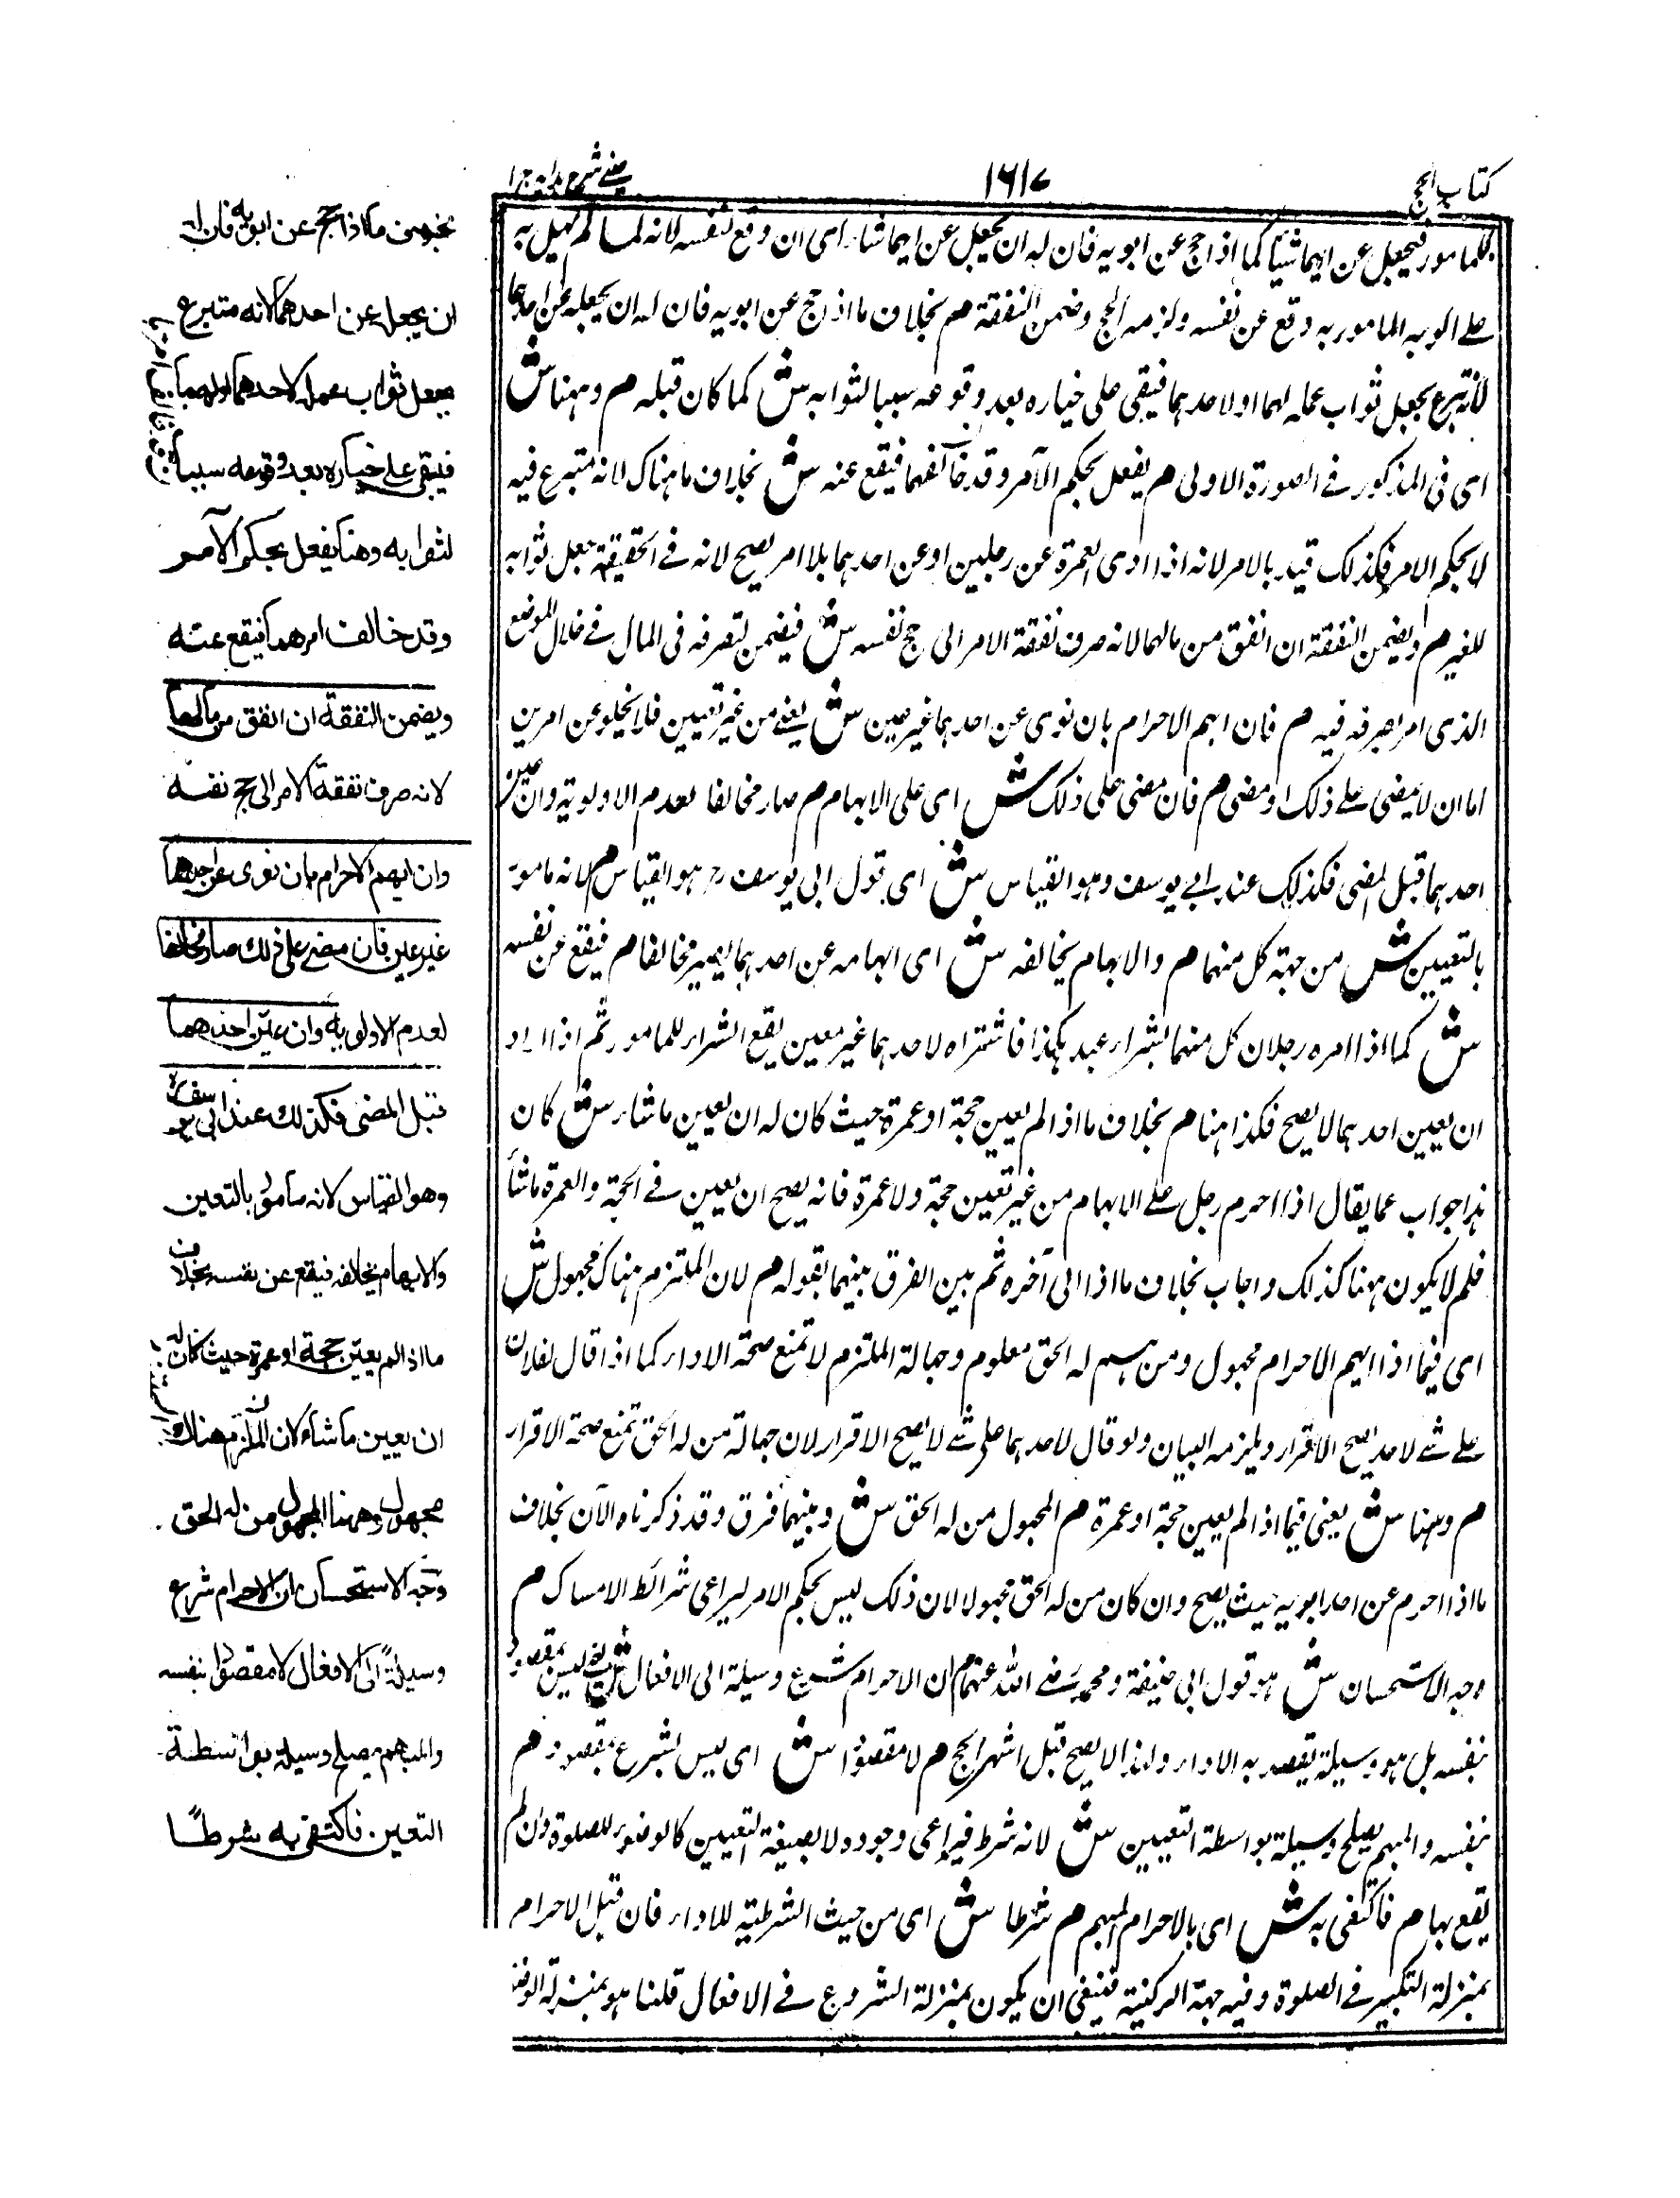 كتاب الحج
١٦١٧
عيني شرح هداية ج ١
للمامور فيجعل عن ايهما شيا كما اذا حج عن ابويه فان له ان يجعل عن ايهما شاء اى ان وقع لنفسه لانه لما لم يهل به
على الوجه المامور به وقع عن نفسه ولزمه الحج وضمن النفقة م بخلاف ما اذا حج عن ابويه فان له ان يجعله عن احدهما
لانه تبرع بجعل ثواب عمله لهما او لاحدهما فيبقى على خياره بعد وقوعه سببا لثوابه ش كما كان قبله م وههنا ش
اى فى المذكور فى الصورة الاولى م يفعل بحكم الآمر وقد خالفهما فيقع عنه ش بخلاف ما هناك لانه متبرع فيه
لا بحكم الامر فكذلك قيد بالامر لانه اذا ادى العمرة عن رجلين او عن احدهما بلا امر يصح لانه فى الحقيقة جعل ثوابه
للغير م ويضمن النفقة ان انفق من مالهما لانه صرف نفقة الامر الى حج نفسه ش فيضمن لتصرفه فى المال فى خلاف الموضع
الذى امر بصرفه فيه م فان ابهم الاحرام بان نوى عن احدهما غير عين ش يعنى من غير تعيين فلا يخلو عن امرين
اما ان لا يمضى على ذلك او مضى م فان مضى على ذلك ش اى على الابهام م صار مخالفا لعدم الاولوية وان عين
احدهما قبل المضى فكذلك عند ابى يوسف وهو القياس ش اى قول ابى يوسف رح هو القياس م لانه مامور
بالتعيين ش من جهة كل منهما م والابهام يخالفه ش اى ابهامه عن احدهما يصير مخالفا م فيقع عن نفسه
ش كما اذا امره رجلان كل منهما بشراء عبد هكذا فاشتراه لاحدهما غير معين يقع الشراء للمامور ثم اذا اراد
ان يعين احدهما لا يصح فكذا هنا م بخلاف ما اذا لم يعين حجة او عمرة حيث كان له ان يعين ما شاء ش كان
هذا جواب عما يقال اذا احرم رجل على الابهام من غير تعيين حجة ولا عمرة فانه يصح ان يعين فى الحجة والعمرة ما شأ
فلم لا يكون ههنا كذلك واجاب بخلاف ما اذا الى آخره ثم بين الفرق بينهما بقوله م لان الملتزم هناك مجهول ش
اى فيما اذا ابهم الاحرام مجهول ومن هم له الحق معلوم وجهالة الملتزم لا تمنع صحة الاداء كما اذا قال لفلان
على شئ لاحد يصح الاقرار ويلزمه البيان ولو قال لاحدهما على شئ لا يصح الاقرار لان جهالة من له الحق تمنع صحة الاقرار
م وههنا ش يعنى فيما اذا لم يعين حجة او عمرة م المجهول من له الحق ش وبينهما فرق وقد ذكرناه الآن بخلاف
ما اذا احرم عن احد ابويه حيث يصح وان كان من له الحق مجهولا لان ذلك ليس بحكم الامر ليراعى شرائط الامساك م
وجه الاستحسان ش هو قول ابى حنيفة ومحمد رضى الله عنهما م ان الاحرام شرع وسيلة الى الافعال ش يعنى ليس بمقصود
بنفسه بل هو وسيلة يقصد به الاداء ولهذا لا يصح قبل اشهر الحج م لا مقصودا ش اى ليس بشرع بمقصود م
بنفسه والمبهم يصلح وسيلة بواسطة التعيين ش لانه شرط فيراعى وجوده لا بصيغة التعيين كالوضوء للصلوة وان لم
يقع بها م فاكتفى به ش اى بالاحرام المبهم م شرطا ش اى من حيث الشرطية للاداء فان قيل الاحرام
بمنزلة التكبير فى الصلوة وفيه جهة الركنية فينبغى ان يكون بمنزلة الشروع فى الافعال قلنا هو بمنزلة الوضوء
بخلاف ما اذا حج عن ابويه فان له
ان يجعل عن احدهما لانه متبرع
بجعل ثواب عمله لاحدهما او لهما
فيبقى على خياره بعد وقوعه سببا
لثوابه وهنا يفعل بحكم الآمر
وقد خالف امرهما فيقع عنه
ويضمن النفقة ان انفق من مالهما
لانه صرف نفقة الامر الى حج نفسه
وان ابهم الاحرام بان نوى عن احدهما
غير عين فان مضى على ذلك صار مخالفا
لعدم الاولوية وان عين احدهما
قبل المضى فكذلك عند ابى يوسف ره
وهو القياس لانه مأمور بالتعين
والابهام يخالفه فيقع عن نفسه بخلاف
ما اذا لم يعين حجة او عمرة حيث كان له
ان يعين ما شاء لان الملتزم هناك
مجهول وههنا المجهول من له الحق
وجه الاستحسان ان الاحرام شرع
وسيلة الى الافعال لا مقصودا بنفسه
والمبهم يصلح وسيلة بواسطة
التعين فاكتفى به شرطا